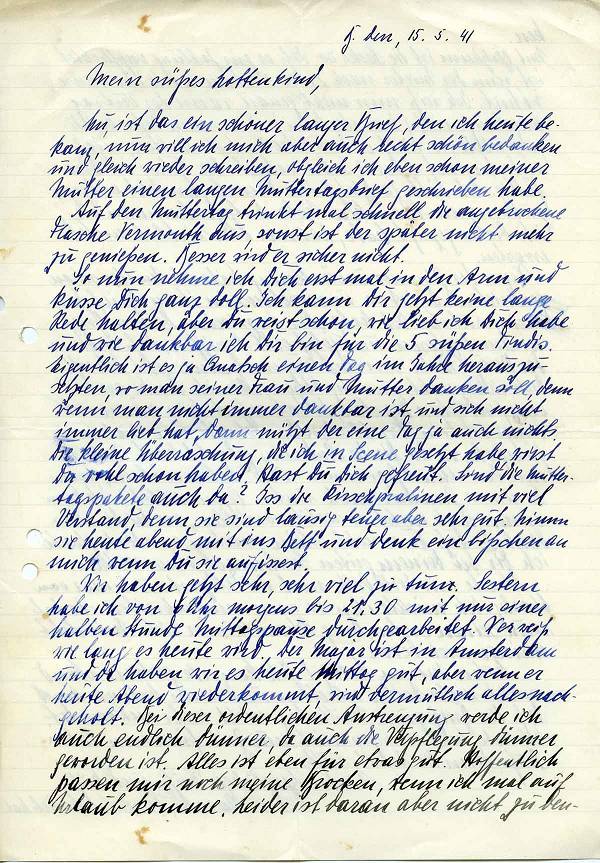 den, 15. 5. 41
Mein süßes Hottenkind,
Au, ist das ein schöner langer Brief, den ich heute be-
kam, nun will ich mich aber auch recht schön bedanken
und gleich wieder schreiben, obgleich ich eben schon meiner
Mutter einen langen Muttertagsbrief geschrieben habe.
Auf den Muttertag trinkt mal schnell die angebrochene
Flasche Vermouth aus, sonst ist der später nicht mehr
zu genießen. Besser wird er sicher nicht.
So nun nehme ich Dich erst mal in den Arm und
küsse Dich ganz doll. Ich kann Dir jetzt keine lange
Rede halten, aber Du weist schon, wie lieb ich Dich habe
und wie dankbar ich Dir bin für die 5 süßen
Eigentlich ist es ja Quatsch einen Tag im Jahre herauszu-
setzen, wo man seiner Frau und Mutter danken soll, denn
wenn man nicht immer dankbar ist und sich nicht
immer lieb hat, dann nützt der eine Tag ja auch nichts.
Die kleine Überraschung, die ich in Scene gesetzt habe wirst
Du wohl schon haben. Hast Du Dich gefreut. Sind die Mutter-
tagspakete auch da? Iss die Kirschpralinen mit viel
Verstand, denn sie sind lausig teuer aber sehr gut. Nimm
sie heute abend mit ins Bett und denk ein bißchen an
mich wenn Du sie aufissest.
Wir haben jetzt sehr, sehr viel zu tun. Gestern
habe ich von 9 Uhr morgens bis 21.30 mit nur einer
halben Stunde Mittagspause durchgearbeitet. Wer weiß
wie lang es heute wird. Der Major ist in Amsterdam
und da haben wir es heute Mittag gut, aber wenn er
heute Abend wiederkommt, wird vermutlich alles nach-
geholt. Bei dieser ordentlichen Anstrengung werde ich
auch endlich dünner, da auch die Verpflegung dünner
geworden ist. Alles ist eben für etwas gut. Hoffentlich
passen mir noch meine Brocken, wenn ich mal auf
Urlaub komme. Leider ist daran aber nicht zu den-